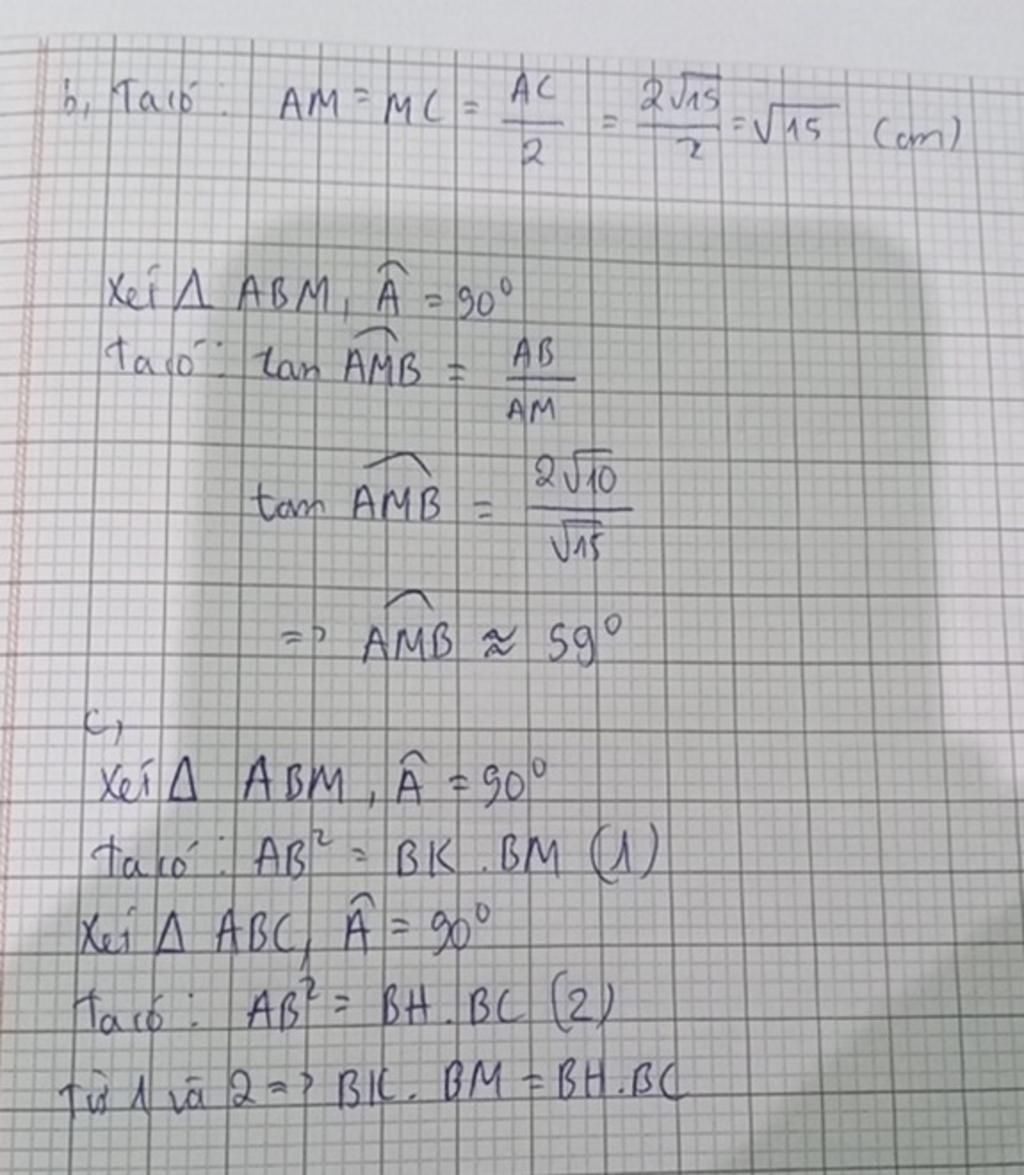 b, Ta có: AM = MC = AC/2 = 2√15/2 = √15 (cm)
Xét Δ ABM, Â = 90°
Ta có: tan AMB = AB/AM
tan AMB = 2√10/√15
=> AMB ≈ 59°
c,
Xét Δ ABM, Â = 90°
ta có: AB² = BK . BM (1)
Xét Δ ABC, Â = 90°
Ta có: AB² = BH . BC (2)
Từ 1 và 2 => BK. BM = BH.BC